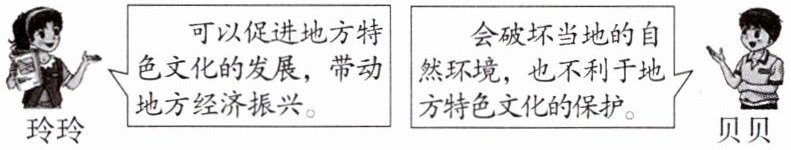 可以促进地方特
色文化的发展，带动
地方经济振兴。
玲玲
会破坏当地的自
然环境，也不利于地
方特色文化的保护。
贝贝